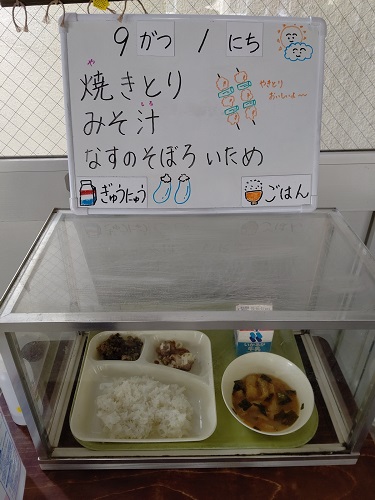 9がつ 1にち
や
焼きとり
やきとり
おいしいよ〜
みそ汁
なすのそぼろいため
ぎゅうにゅう
ごはん